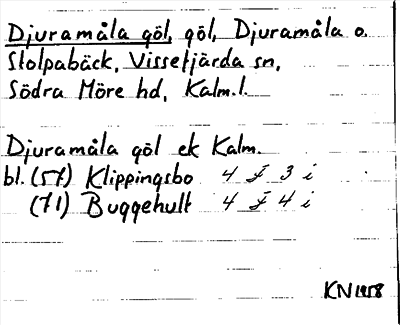 Djuramåla göl, göl, Djuramåla o.
Stolpabäck, Vissefjärda sn,
Södra Möre hd, Kalm. l.
Djuramåla göl ek Kalm.
bl. (57) Klippingsbo 4 F 3 i
(71) Buggehult 4 F 4 i
KN 1958